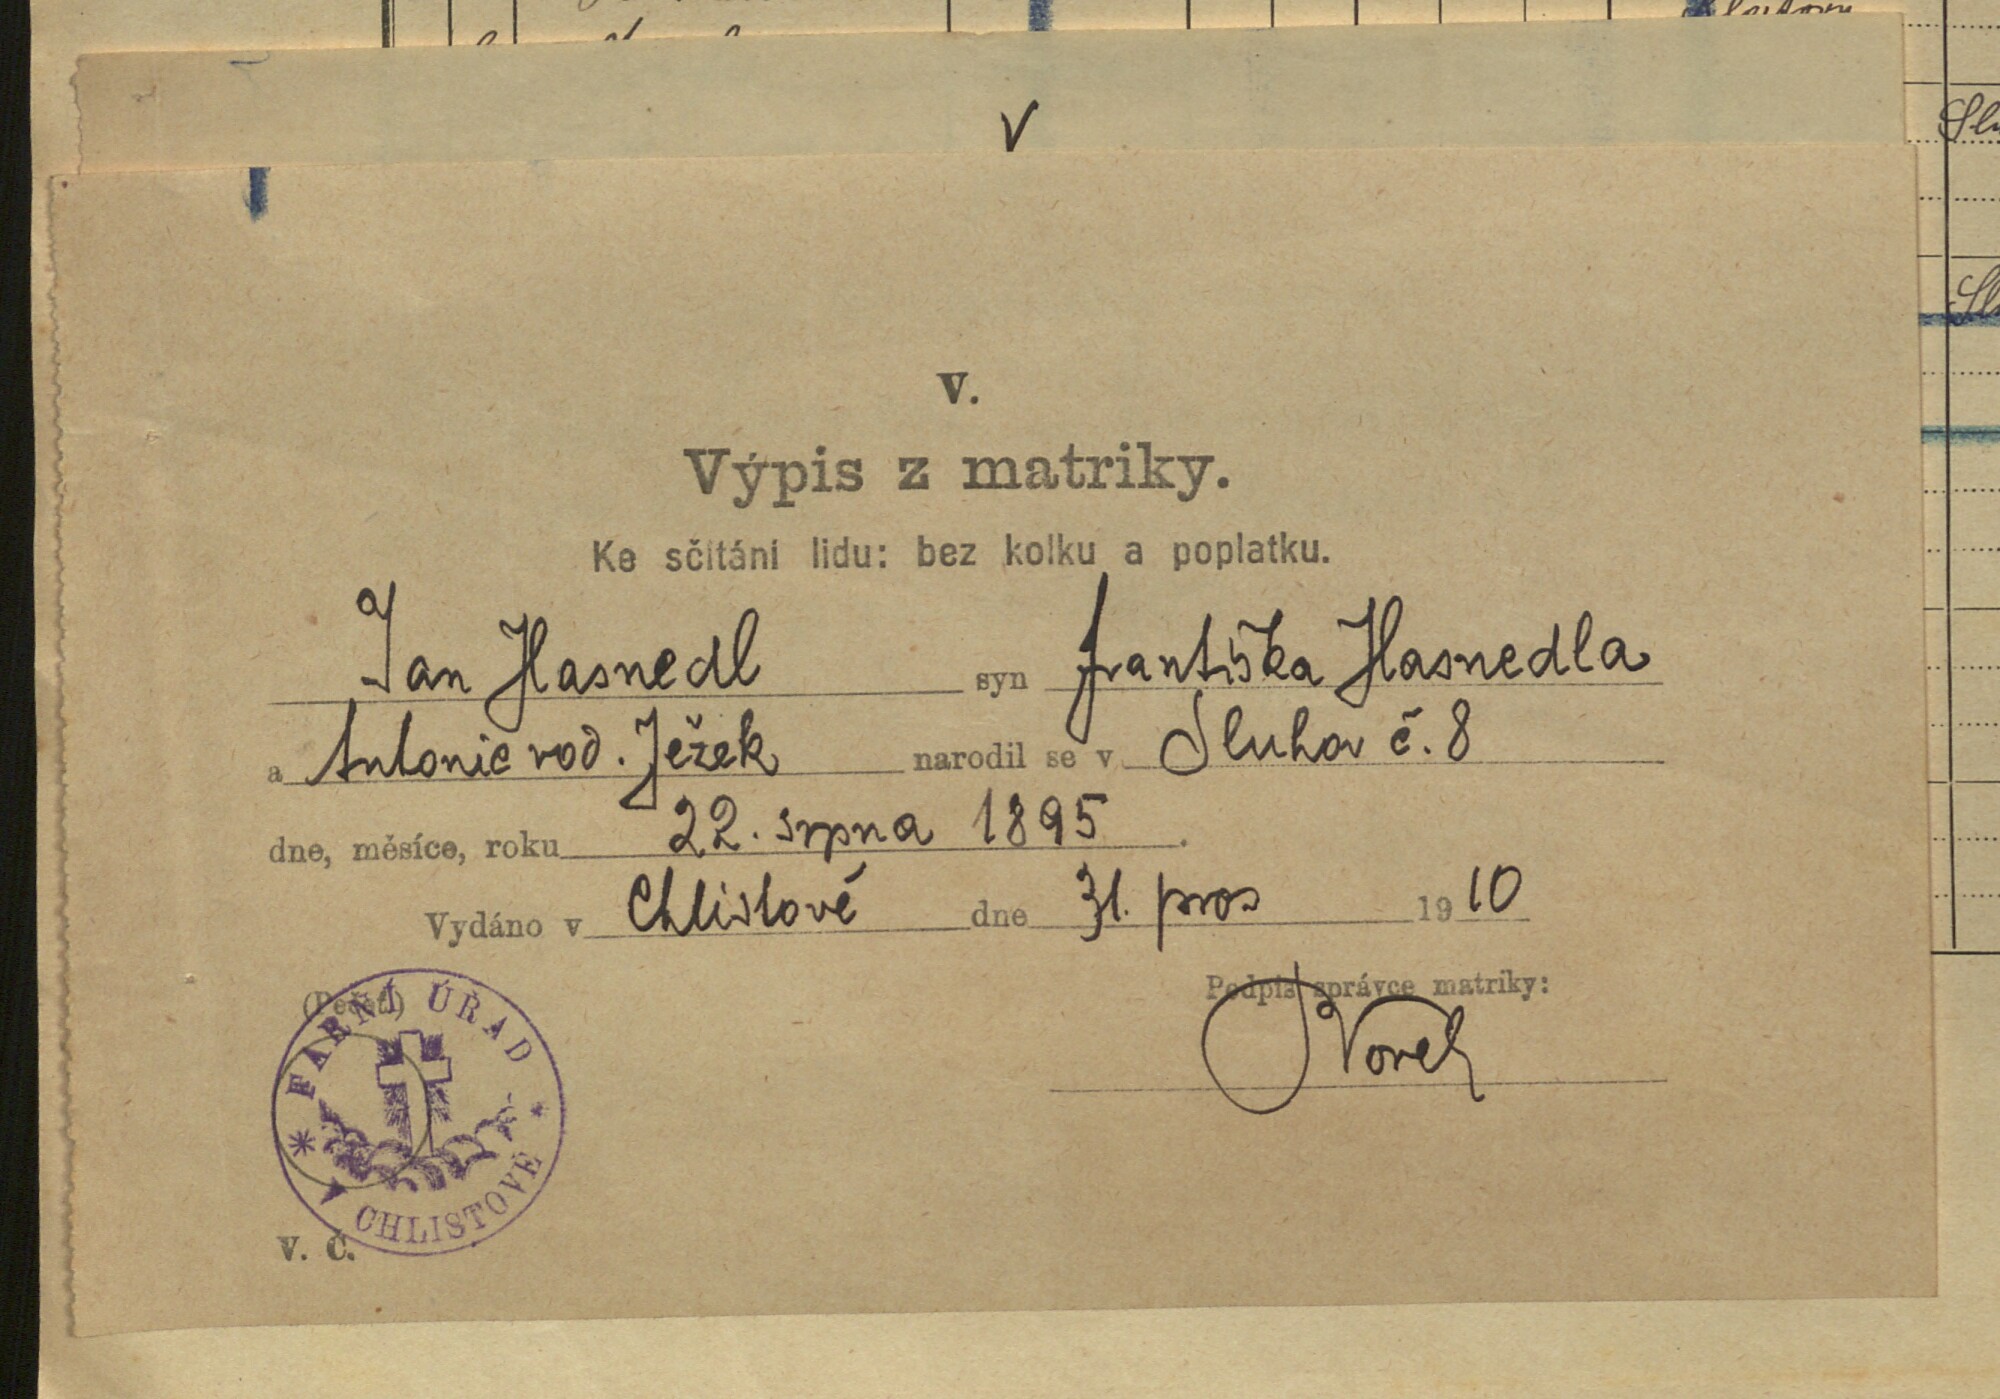 V
V.
Výpis z matriky.
Ke sčítání lidu: bez kolku a poplatku.
Jan Hasnedl syn Františka Hasnedla
a Antonie rod. Ježek narodil se v Sluhov č. 8
dne, měsíce, roku 22. srpna 1895.
Vydáno v Chlistově dne 31. pros 1910
(Pečeť) Podpis správce matriky:
FARNÍ ÚŘAD
V CHLISTOVĚ
V. Č.